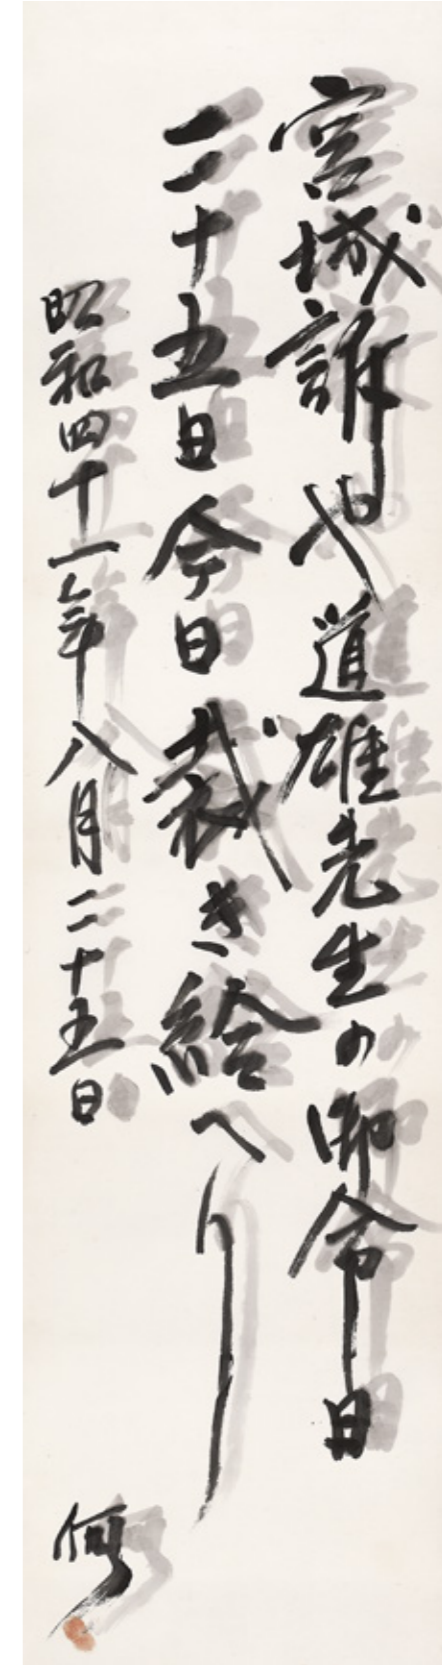 宮城や道雄先生の御命日
二十五日今日裁き給へり
昭和四十一年八月二十五日
何